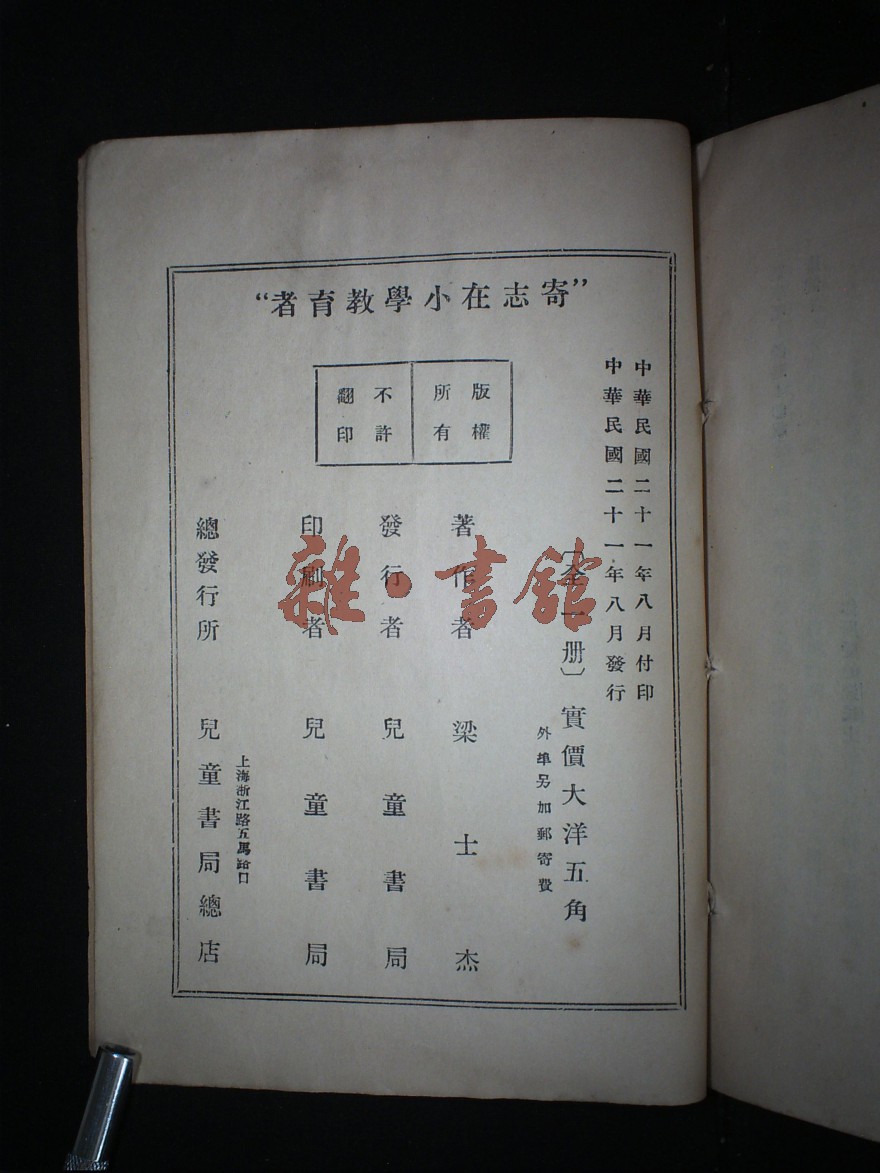 “寄志在小學教育者”
中華民國二十一年八月付印
中華民國二十一年八月發行
版權
所有
不許
翻印
〔全一册〕實價大洋五角
外埠另加郵寄費
著作者 梁士杰
發行者 兒童書局
印刷者 兒童書局
上海浙江路五馬路口
總發行所 兒童書局總店
雜·書館